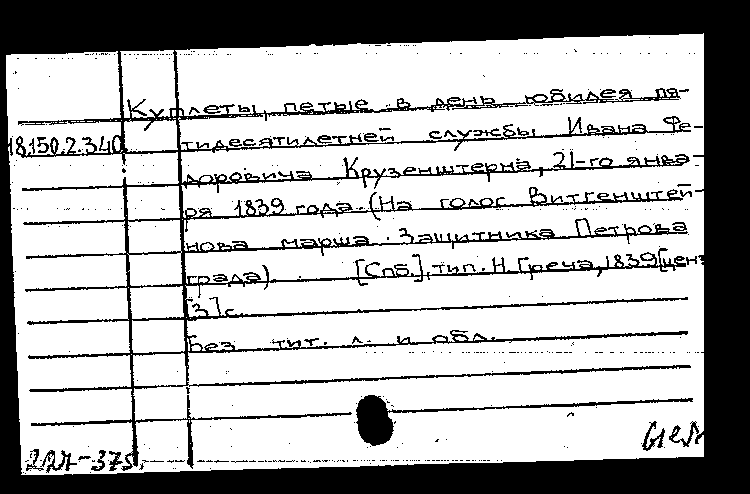 Куплеты, петые в день юбилея пя-
18.150.2.340 тидесятилетней службы Ивана Фе-
доровича Крузенштерна, 21-го янва-
ря 1839 года. (На голос Витгенштей-
нова марша. Защитника Петрова
града). [Спб.], тип. Н. Греча, 1839[ценз
[3]с.
Без тит. л. и обл.